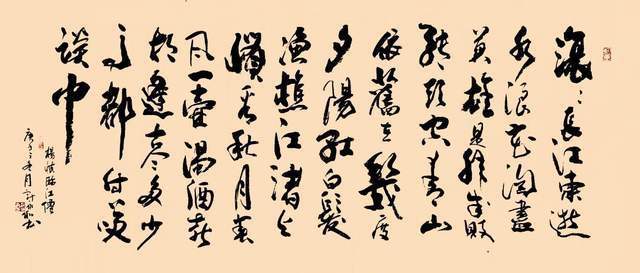 滾〻長江東逝
水浪花淘盡
英雄是非成敗
轉頭空青山
依舊在幾度
夕陽紅白髮
漁樵江渚上
慣看秋月春
風一壺濁酒喜
相逢古今多少
事都付笑
談中
楊慎臨江僊